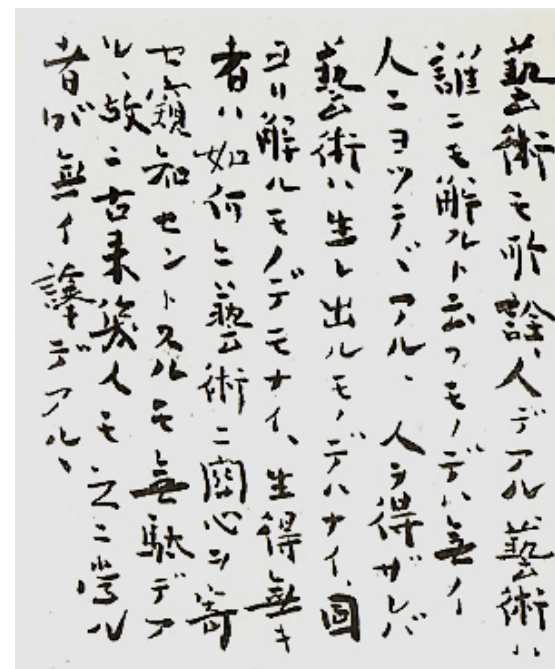 藝術モ所詮、人デアル藝術ハ
誰ニモ解ルト云フモノデハ無イ
人ニヨツテヾアル、人ヲ得ザレバ
藝術ハ生レ出ルモノデハナイ、固
ヨリ解ルモノデモナイ、生得無キ
者ハ如何ニ藝術ニ関心ヲ寄
セ窺知セントスルモ無駄デア
ル、故ニ古来幾人モ之ニ當ル
者ガ無イ譯デアル、